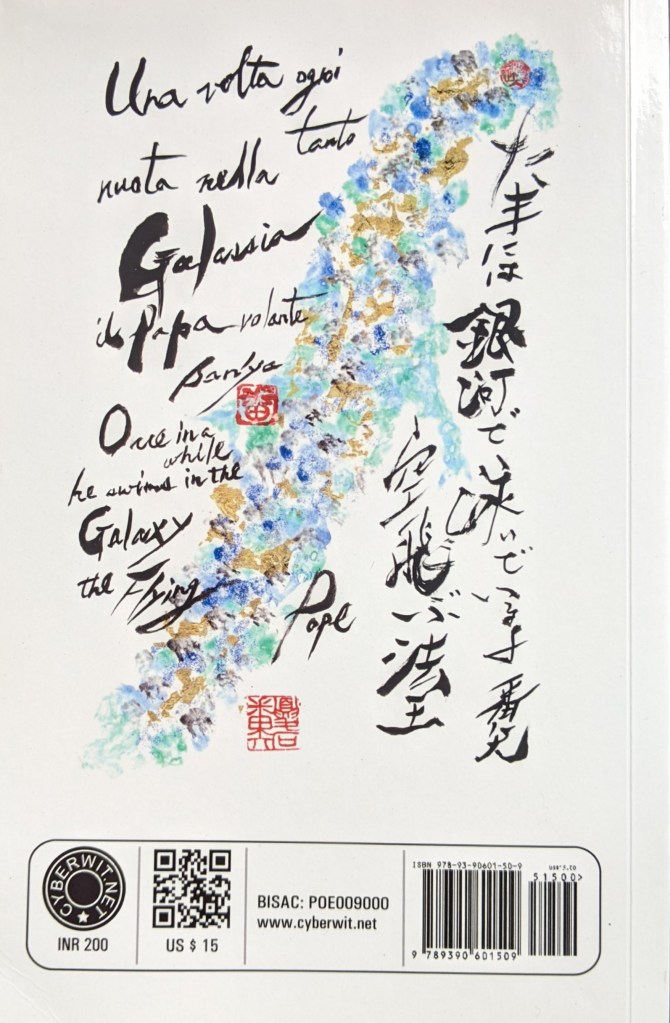 Una volta ogni
tanto
nuota nella
Galassia
il Papa volante
Ban'ya
Once in a
while
he swims in the
Galaxy
the Flying
Pope
たまには銀河で泳いでいるよ
空飛ぶ法王
CYBERWIT.NET
INR 200
US $ 15
BISAC: POE009000
www.cyberwit.net
ISBN 978-93-90601-50-9
51500>
9 789390 601509